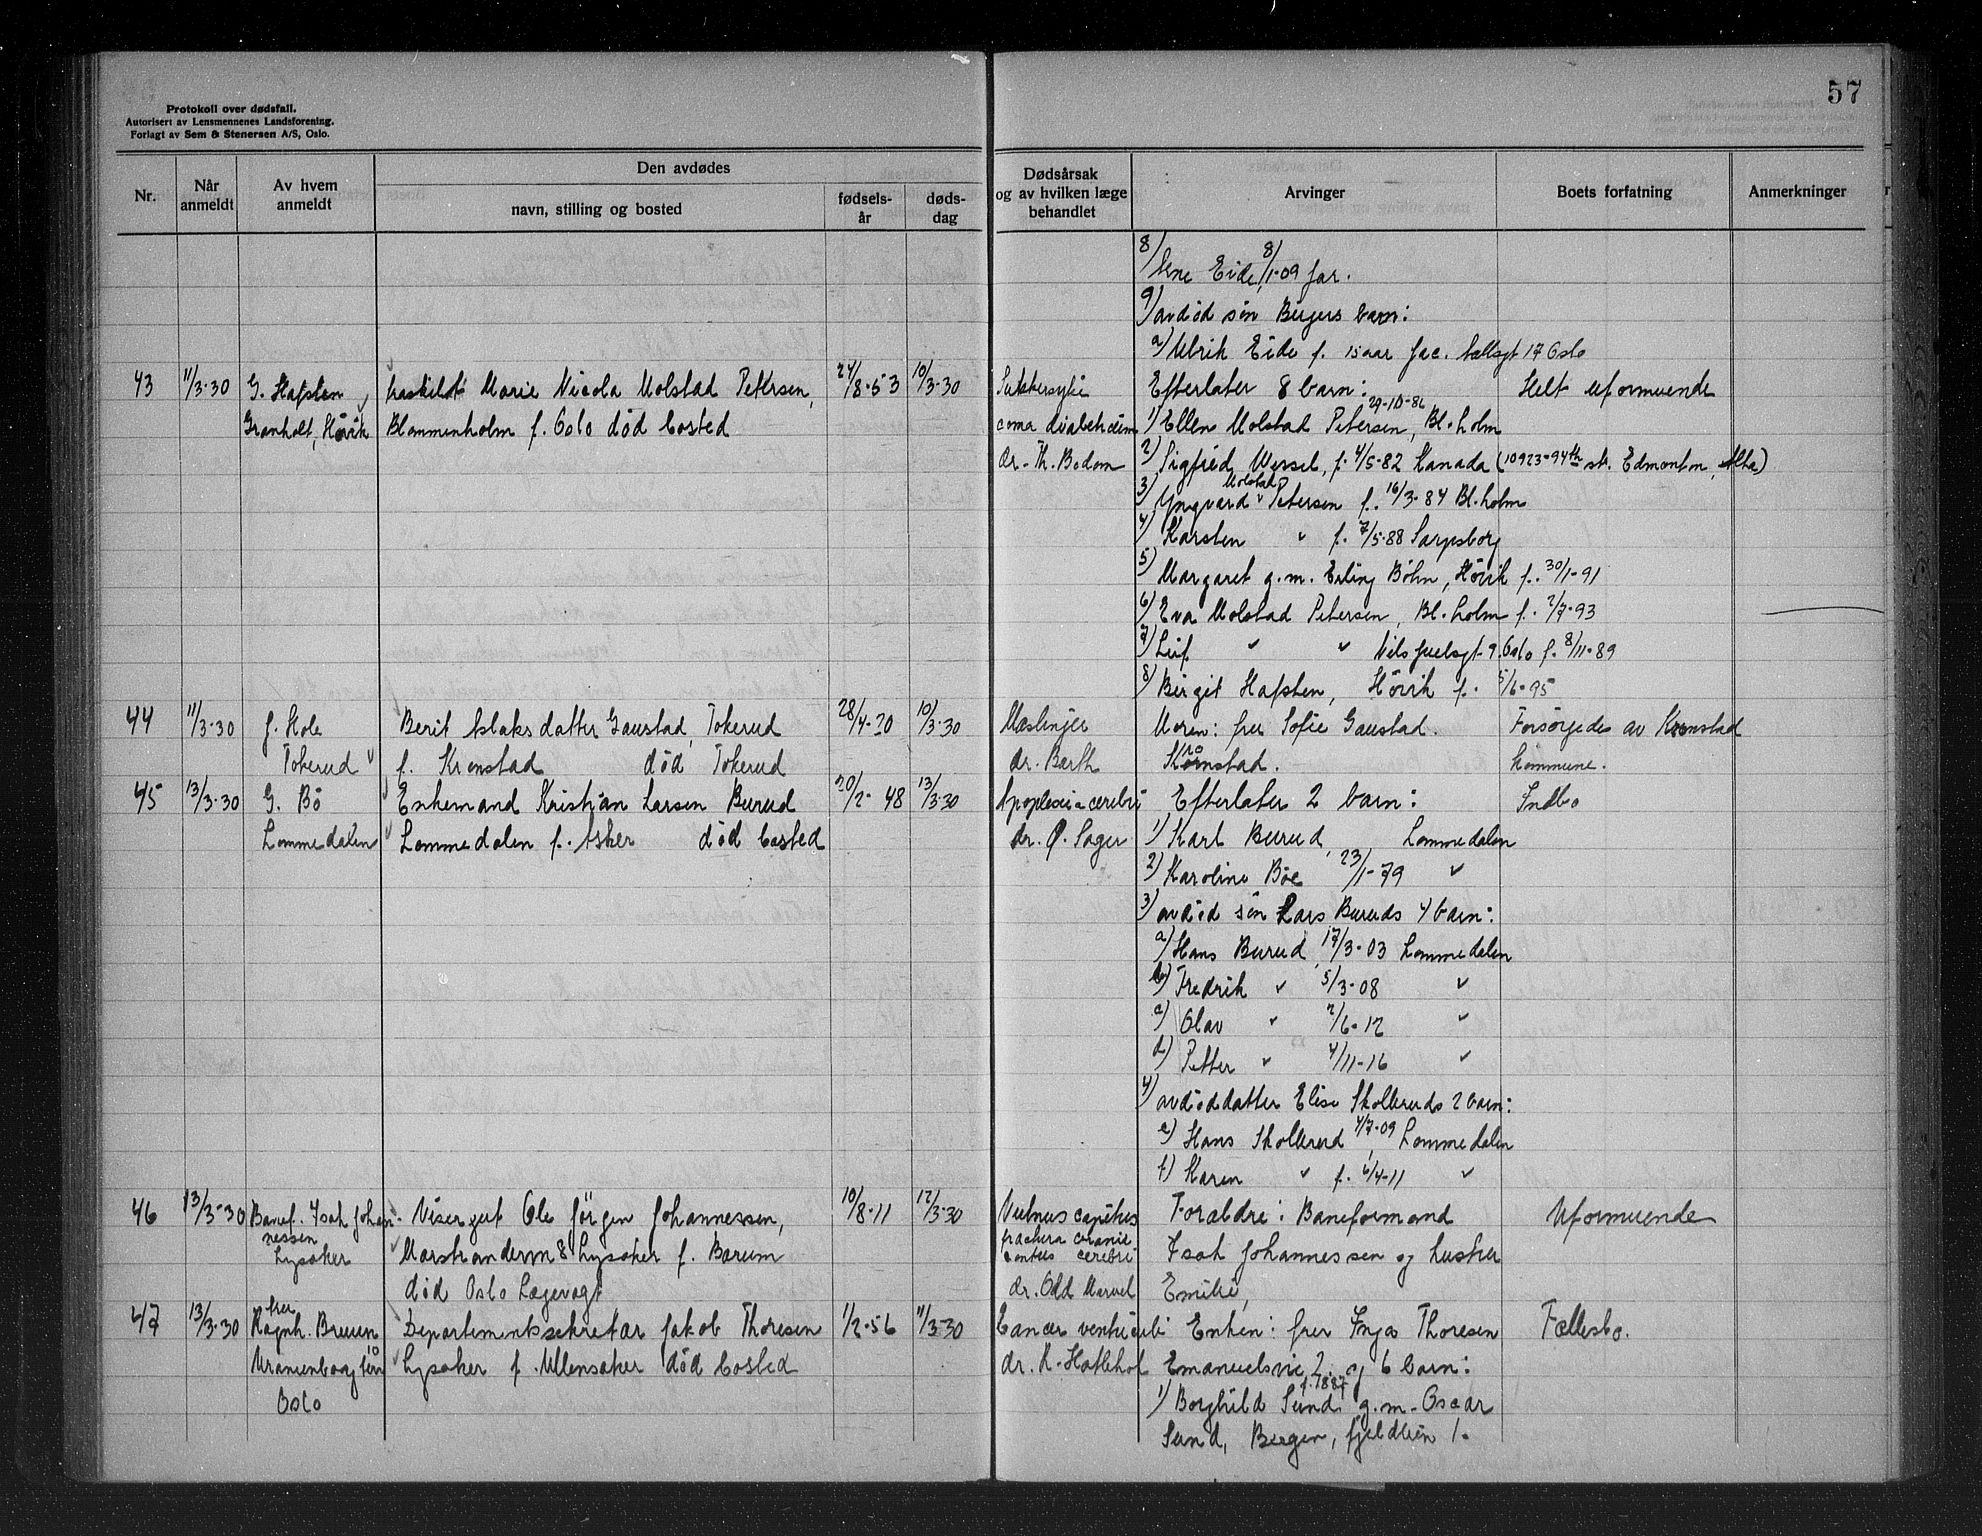 Protokoll over dødsfall.
Autorisert av Lensmennenes Landsforening.
Forlagt av Sem & Stenersen A/S, Oslo.
57
Nr.
Når anmeldt
Av hvem anmeldt
Den avdødes
navn, stilling og bosted
fødsels-år
døds-dag
Dødsårsak og av hvilken læge behandlet
Arvinger
Boets forfatning
Anmerkninger
8) Eide, 8/1-09 Jar.
9) avdöd sön Birgers barn:
a) Ulrik Eide f. 15 aar Jac. 17 Oslo
43 11/3-30 G. Hafsten fraskilt Marie Nicola Molstad Petersen, 24/8-53 10/3-30 Sukkersyke Efterlater 8 barn: Helt uformuende
Granholt, Hövik Blommenholm f. Oslo död bosted coma diabeticum 1) Ellen Molstad Petersen, 29-10-86 Bl.holm
dr. Th. Bodom 2) Sigfred Wessel, f. 4/5-82 Kanada (10923-94th str. Edmonton, Alta)
3) Yngvard Molstad Petersen f. 16/3-84 Bl.holm
4) Karsten " f. 7/5-88 Sarpsborg
5) Margaret g.m. Erling Böhn, Hövik f. 30/1-91
6) Eva Molstad Petersen, Bl.holm f. 2/7-93
7) Leif " " Nils Juelsgt. 9. Oslo f. 8/11-89
8) Birgit Hafsten, Hövik f. 5/6-95
44 11/3-30 J. Hole Berit Aslaksdatter Gaustad, Tokerud 28/4-20 10/3-30 Mæslinger Moren: fru Sofie Gaustad. Forsørgedes av Kornstad
Tokerud f. Kronstad död Tokerud dr. Barth Kornstad. kommune.
45 13/3-30 G. Bö Enkemand Kristian Larsen Burud 20/2-48 13/3-30 Apoplexia cerebri Efterlater 2 barn: Indbo
Lommedalen Lommedalen f. Asker död bosted dr. Sager 1) Karl Burud, Lommedalen
2) Karoline Böe 23/1-79 "
3) avdöd sön Lars Buruds 4 barn:
a) Hans Burud, 17/3-03 Lommedalen
b) Fredrik " 5/3-08 "
c) Olav " 2/6-12 "
d) Petter " 4/11-16 "
4) avdöd datter Elise Skolleruds 2 barn:
e) Hans Skollerud 4/7-09, Lommedalen
f) Karen " f. 6/4-11 "
46 13/3-30 Banef. Isak Johan- Visergut Ole Jörgen Johannessen, 10/8-11 12/3-30 Vulnus capitis Foreldre: Baneformand Uformuende
nessen
Lysaker Marstranderv. 8 Lysaker f. Bærum fractura cranie contus cerebri Isak Johannessen og hustru
död Oslo Lægevagt dr. Odd Emilie,
47 13/3-30 fru Ragnh. Bruun Departementssekretær Jakob Thoresen 1/2-56 11/3-30 Cancer ventriculi Enken: fru Inga Thoresen Fællesbo.
Uranienborg Lysaker f. Ullensaker död bosted dr. K. Emanuelsvie 2. og 6 barn:
Oslo 1) Borghild Sund f. 1887 g.m. Oscar
Sund, Bergen, Fjeldlien 1.